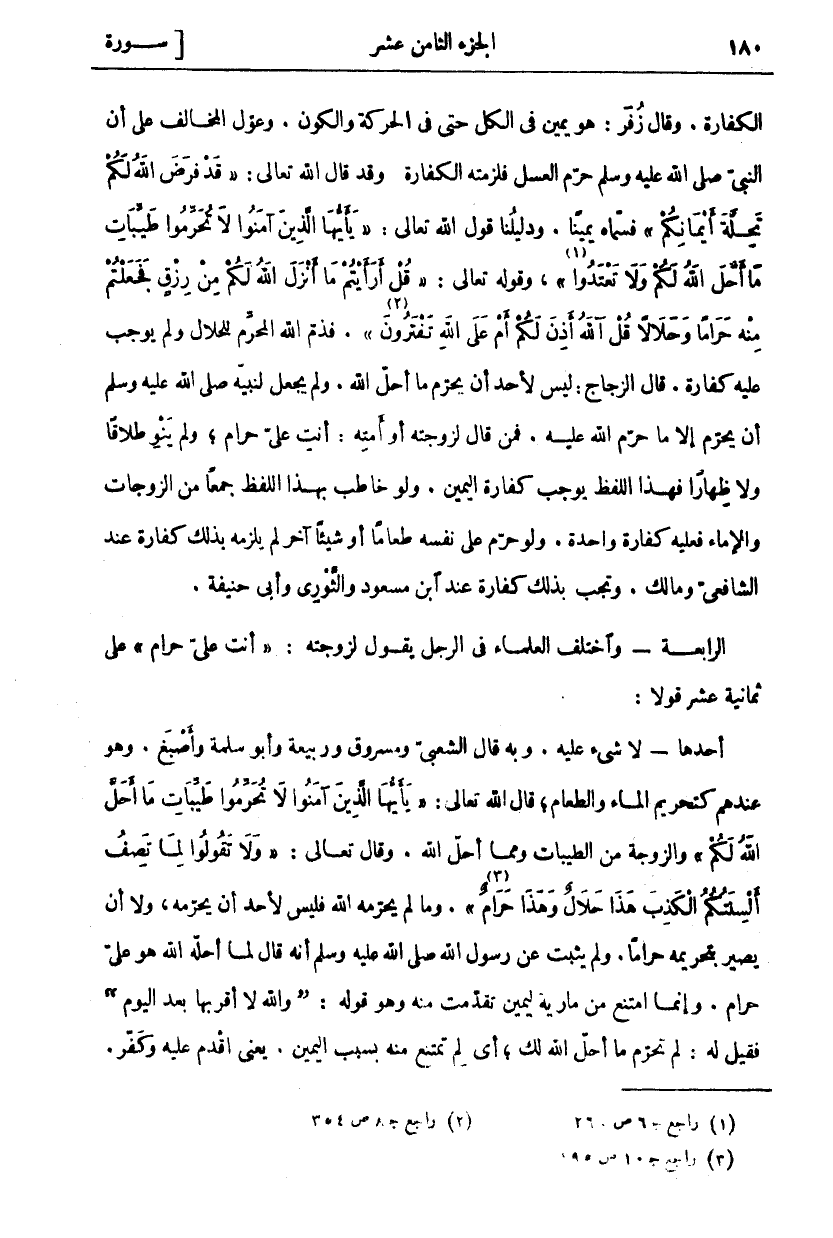 ١٨٠ الجزء الثامن عشر [ ســورة
الكفارة . وقال زُفَر : هو يمين فى الكل حتى فى الحركة والكون . وعوّل المخالف على أن
النبىّ صلى الله عليه وسلم حرّم العسل فلزمته الكفارة وقد قال الله تعالى : « قَدْ فَرَضَ اللّٰهُ لَكُمْ
تَحِلَّةَ أَيْمَانِكُمْ » فسمّاه يمينًا . ودليلُنا قول الله تعالى : « يَأَيُّهَا الَّذِينَ آمَنُوا لَا تُحَرِّمُوا طَيِّبَاتِ
مَا أَحَلَّ اللّٰهُ لَكُمْ وَلَا تَعْتَدُوا (١) » ، وقوله تعالى : « قُلْ أَرَأَيْتُمْ مَا أَنْزَلَ اللّٰهُ لَكُمْ مِنْ رِزْقٍ فَجَعَلْتُمْ
مِنْه حَرَامًا وَحَلَالًا قُلْ آللّٰهُ أَذِنَ لَكُمْ أَمْ عَلَى اللّٰهِ تَفْتَرُونَ (٢) » . فذمّ الله المحرِّم للحلال ولم يوجب
عليه كفارة . قال الزجاج : ليس لأحد أن يحرّم ما أحلّ الله . ولم يجعل لنبيّه صلى الله عليه وسلم
أن يحرّم إلا ما حرّم الله عليــه . فمن قال لزوجته أو أَمتِه : أنتِ علىّ حرام ؛ ولم يَنْوِ طلاقًا
ولا ظِهارًا فهــذا اللفظ يوجب كفارة اليمين . ولو خاطب بهــذا اللفظ جمعًا من الزوجات
والإماء فعليه كفارة واحدة . ولو حرّم على نفسه طعامًا أو شيئًا آخر لم يلزمه بذلك كفارة عند
الشافعىّ ومالك . وتجب بذلك كفارة عند ابن مسعود والثَّوْرِى وأبى حنيفة .
الرابعــة — وآختلف العلمــاء فى الرجل يقــول لزوجته : « أنت علىّ حرام » على
ثمانية عشر قولا :
أحدها — لا شىء عليه . وبه قال الشعبىّ ومسروق وربيعة وأبو سلمة وأَصْبَغ . وهو
عندهم كتحريم المــاء والطعام ؛ قال الله تعالى : « يَأَيُّهَا الَّذِينَ آمَنُوا لَا تُحَرِّمُوا طَيِّبَاتِ مَا أَحَلَّ
اللّٰهُ لَكُمْ » والزوجة من الطيبات ومما أحلّ الله . وقال تعــالى : « وَلَا تَقُولُوا لِمَا تَصِفُ
أَلْسِنَتُكُمُ الْكَذِبَ هَذَا حَلَالٌ وَهَذَا حَرَامٌ (٣) » . وما لم يحرّمه الله فليس لأحد أن يحرّمه ، ولا أن
يصير بتحريمه حرامًا . ولم يثبت عن رسول الله صلى الله عليه وسلم أنه قال لمــا أحلّه الله هو علىّ
حرام . وإنمــا امتنع من مارية ليمين تقدّمت منه وهو قوله : ” والله لا أقربها بعد اليوم “
فقيل له : لم تحرّم ما أحلّ الله لك ؛ أى لِم تمتنع منه بسبب اليمين . يعنى اقْدم عليه وكَفّر .
(١) راجع جـ ٦ ص ٢٦٠ (٢) راجع جـ ٨ ص ٣٥٤
(٣) راجع جـ ١٠ ص ١٩٥